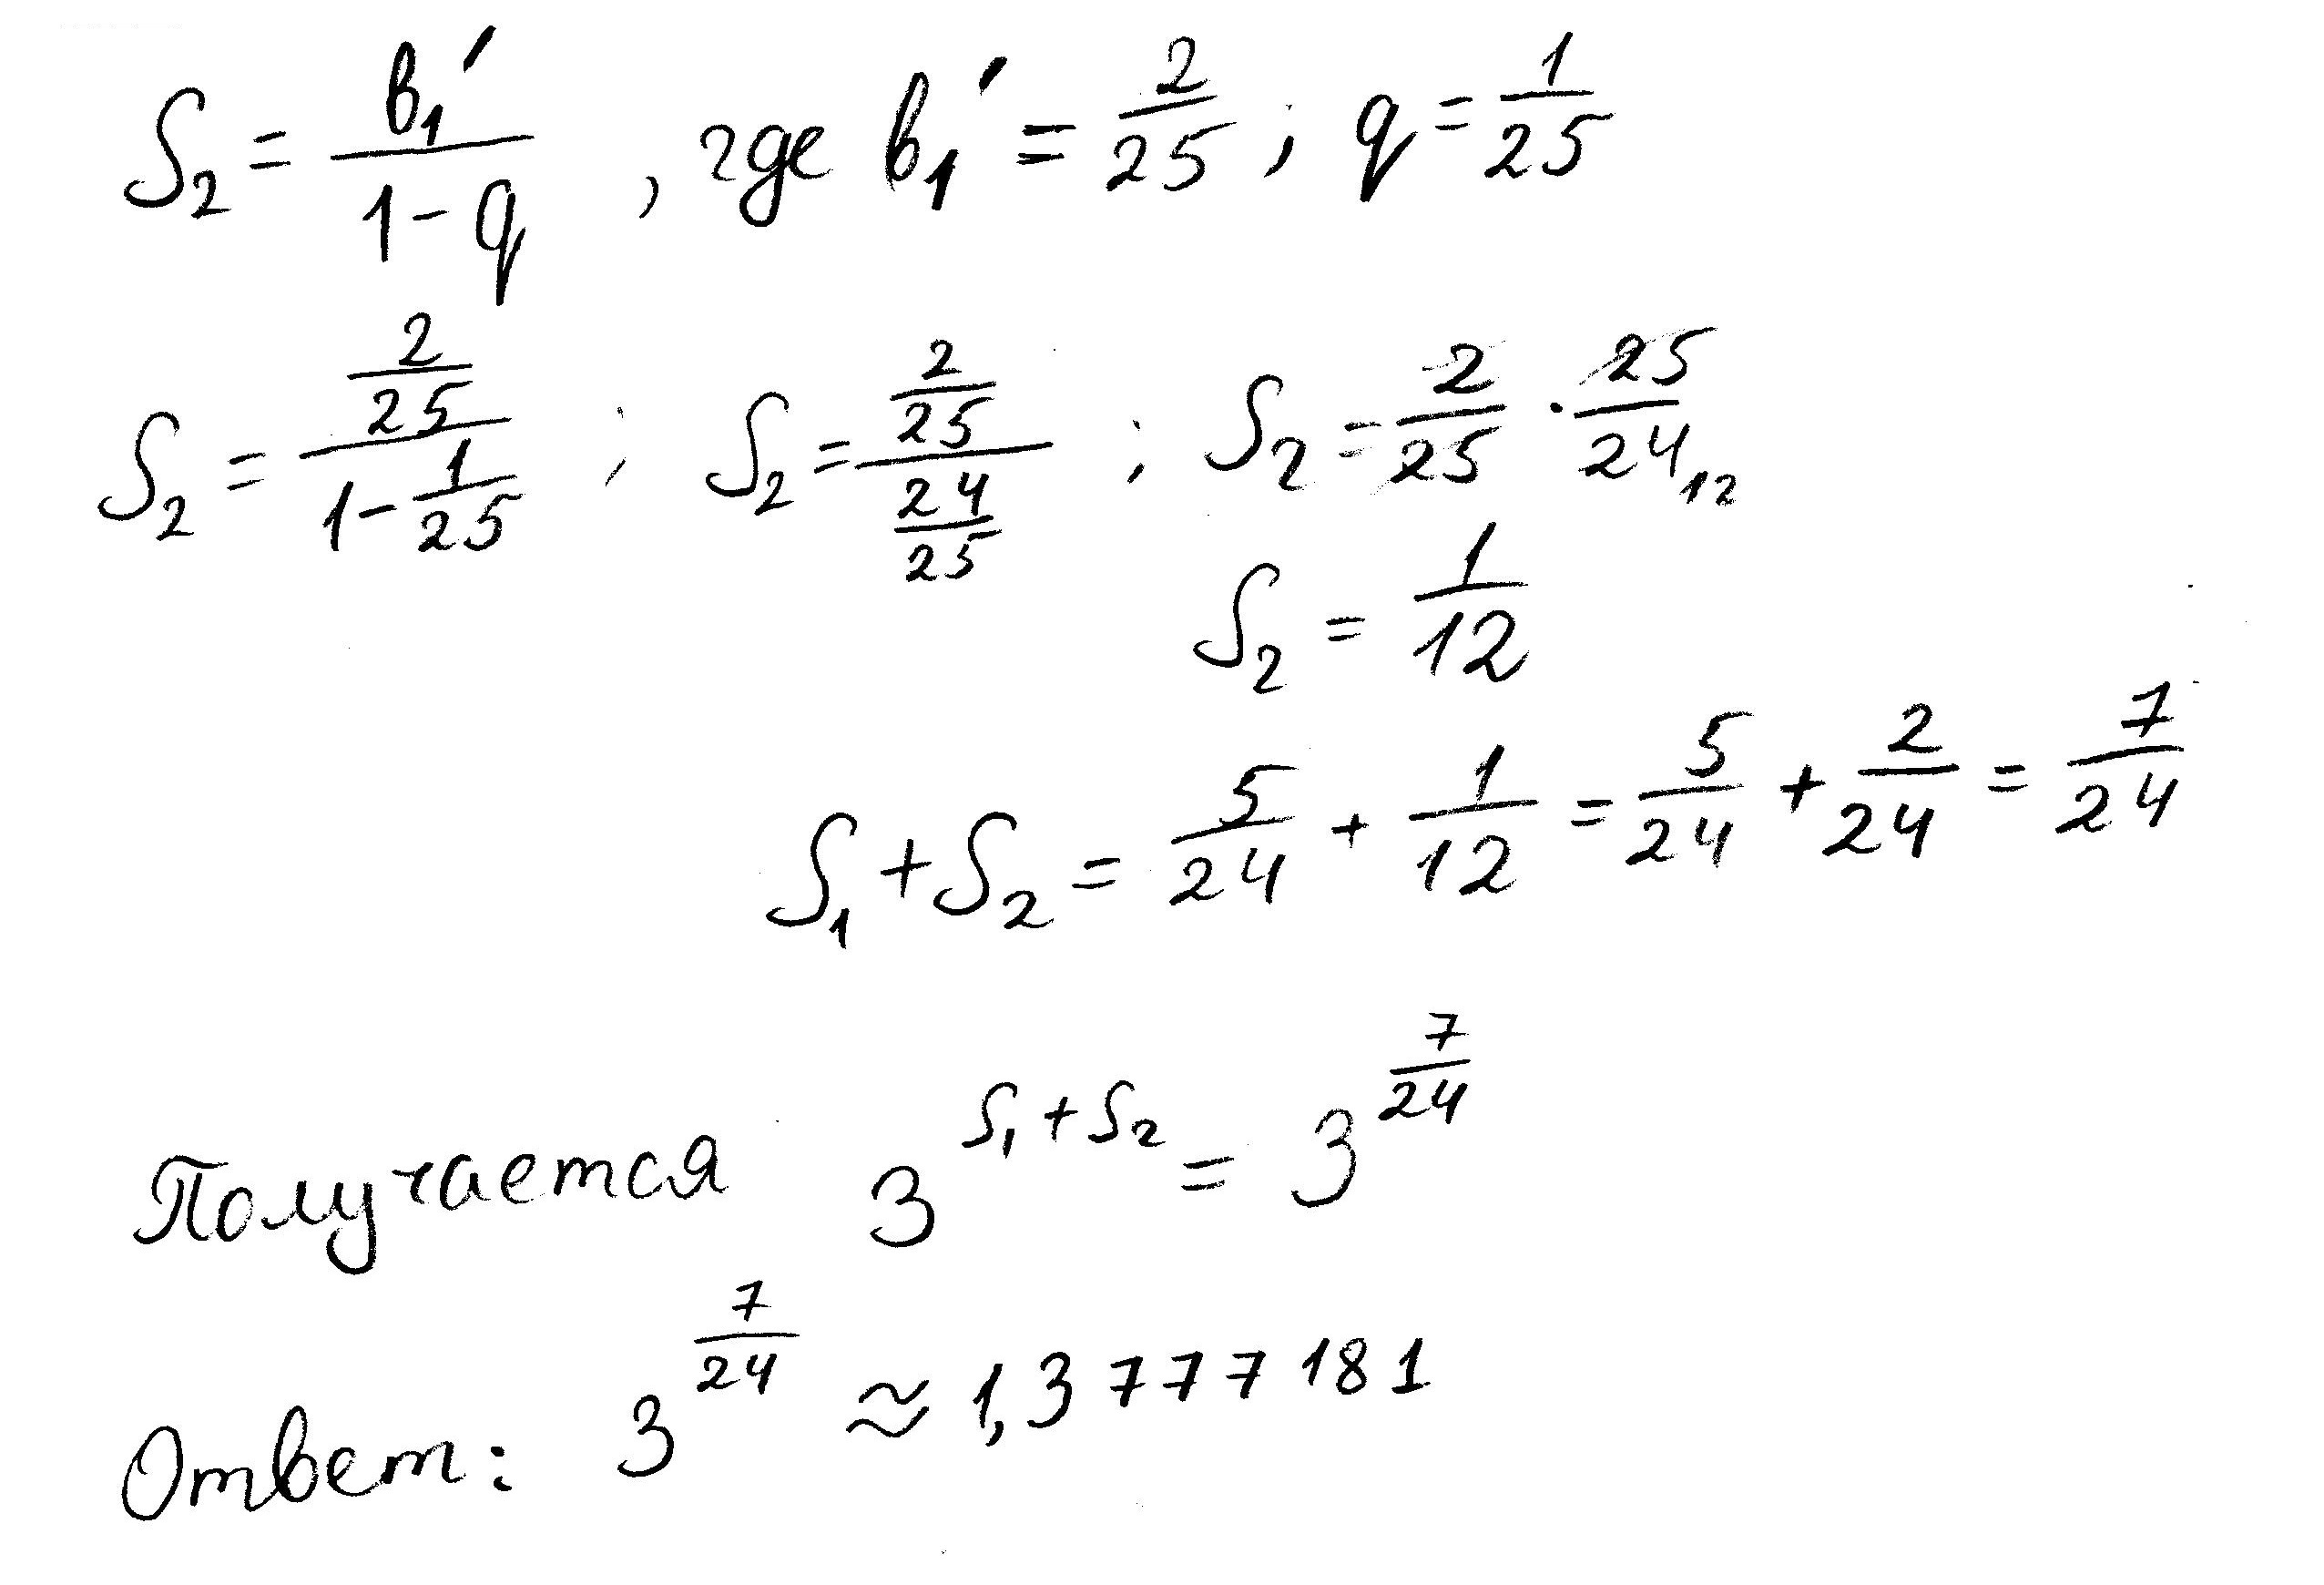 S₂ = b₁′ / (1 - q) , где b₁′ = 2/25 ; q = 1/25
S₂ = (2/25) / (1 - 1/25) ; S₂ = (2/25) / (24/25) ; S₂ = 2/25 · 25/24 12
S₂ = 1/12
S₁ + S₂ = 5/24 + 1/12 = 5/24 + 2/24 = 7/24
Получается 3^(S₁ + S₂) = 3^(7/24)
Ответ: 3^(7/24) ≈ 1,3777181